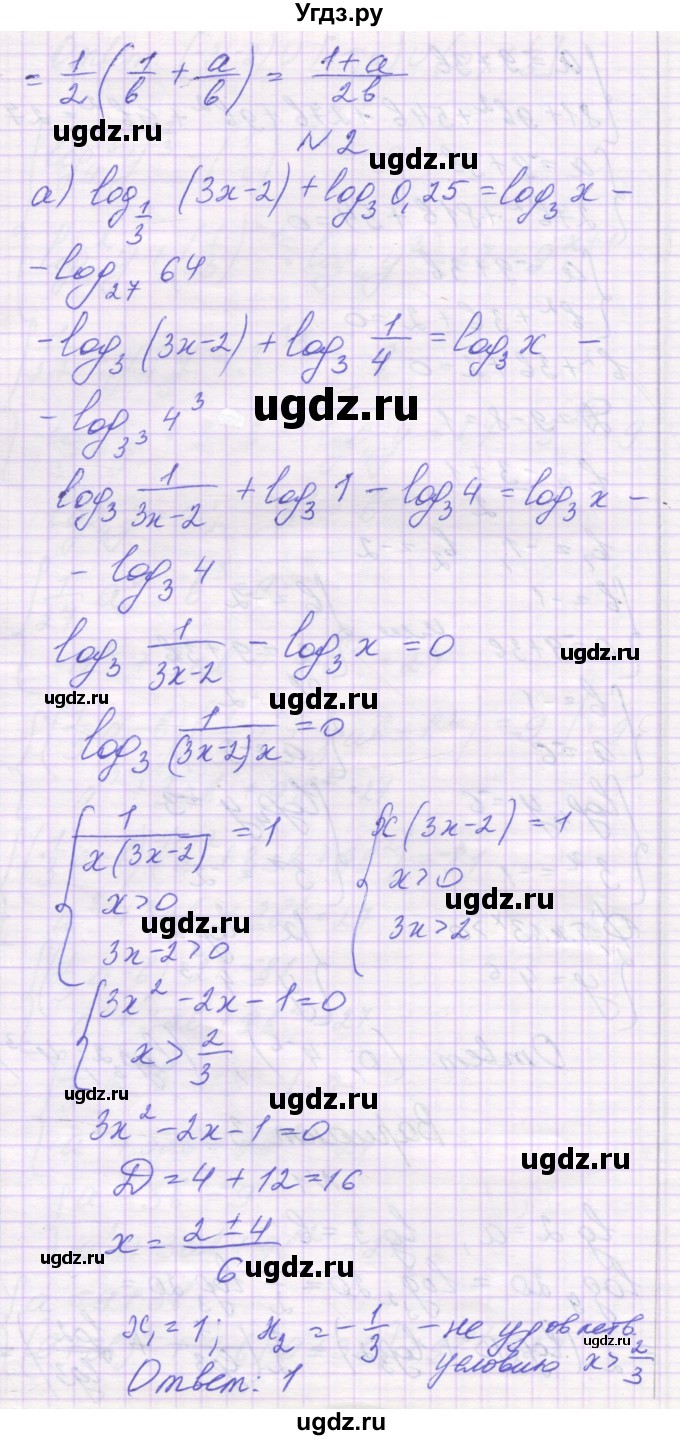 Угдз.ру
= 1/2 (1/b + a/b) = (1+a)/2b
ugdz.ru
№ 2
ugdz.ru
а) log_{1/3} (3x-2) + log_3 0,25 = log_3 x -
- log_{27} 64
- log_3 (3x-2) + log_3 1/4 = log_3 x -
ugdz.ru
- log_{3^3} 4^3
log_3 1/(3x-2) + log_3 1 - log_3 4 = log_3 x -
- log_3 4
log_3 1/(3x-2) - log_3 x = 0
ugdz.ru
ugdz.ru
ugdz.ru
log_3 1/((3x-2)x) = 0
{ 1/(x(3x-2)) = 1 { x(3x-2) = 1
x>0 x>0
ugdz.ru ugdz.ru
3x-2>0 3x>2
{ 3x² - 2x - 1 = 0
x > 2/3
ugdz.ru ugdz.ru
3x² - 2x - 1 = 0
ugdz.ru
D = 4 + 12 = 16
x = (2 ± 4)/6
ugdz.ru ugdz.ru
x₁ = 1; x₂ = - 1/3 - не удовлетв.
ugdz.ru
условию x > 2/3
Ответ: 1
ugdz.ru